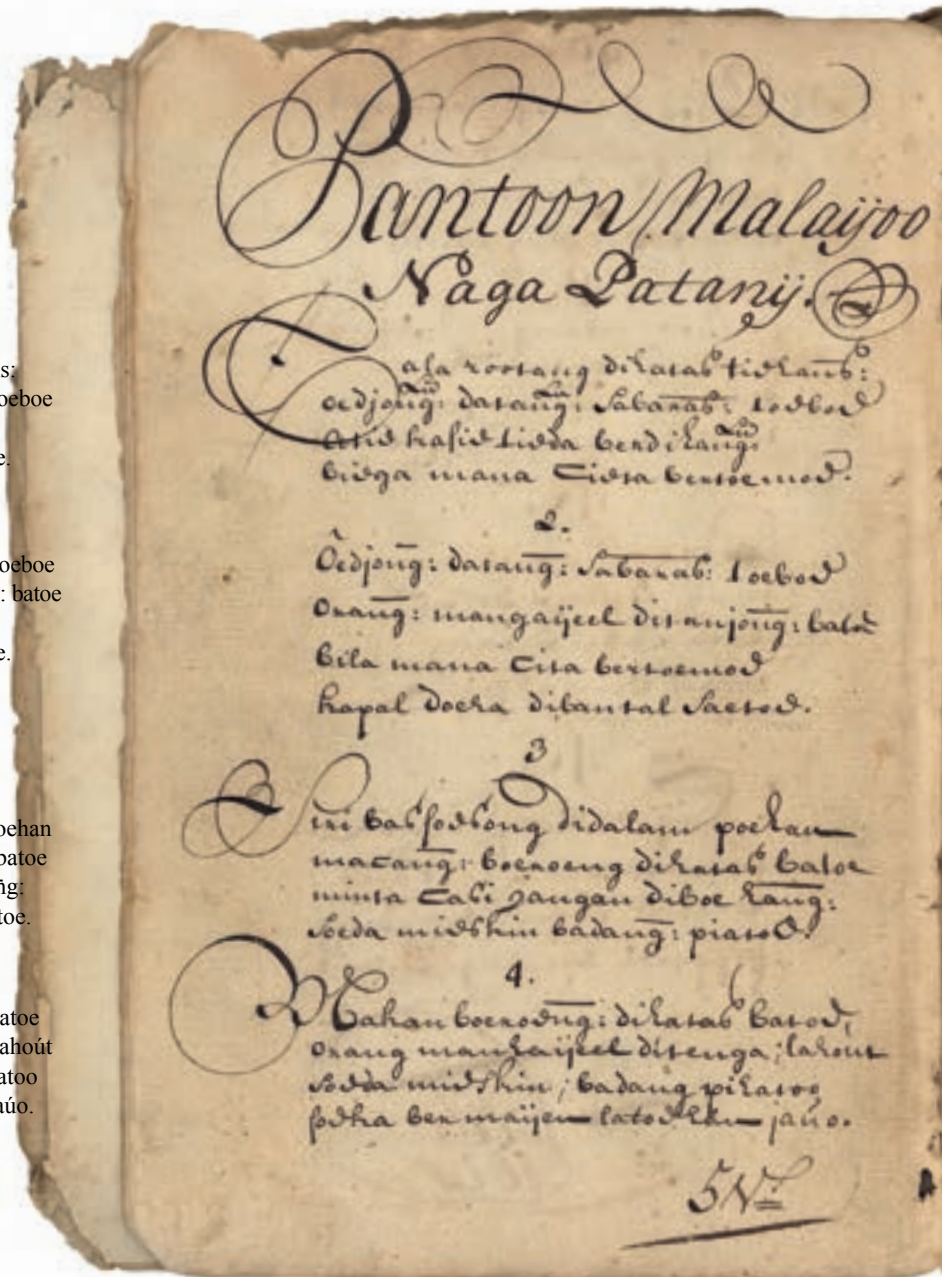 s:
oeboe
e.
oeboe
: batoe
e.
oehan
batoe
ñg:
toe.
atoe
ahoút
atoo
aúo.
Pantoon Malaijoo
Naga Patanij.
rootang dihatas tiekañs:
oedjoñg: datañg: sabarañs: toeboe
hasie tieda berdikañg:
mana Cieta bertoemoe.
2.
Oedjoñg: datañg: sabaras: toeboe
orañg: mangaijeel ditanjoñg: batoe
bila mana Cita bertoemoe
kapal doeha dibantal saetoe.
3
Siri didalam poehan
macañg: boeroeng dihatas batoe
minta Casi jangan diboe hañg:
soeda mieskin badañg: piatoe.
4.
Makan boeroeñg: dihatas batoe,
orang manhaijeel ditenga; lahoút
soeda mieskin; badang pihatoo
soeka ber maijen jaúo.
5